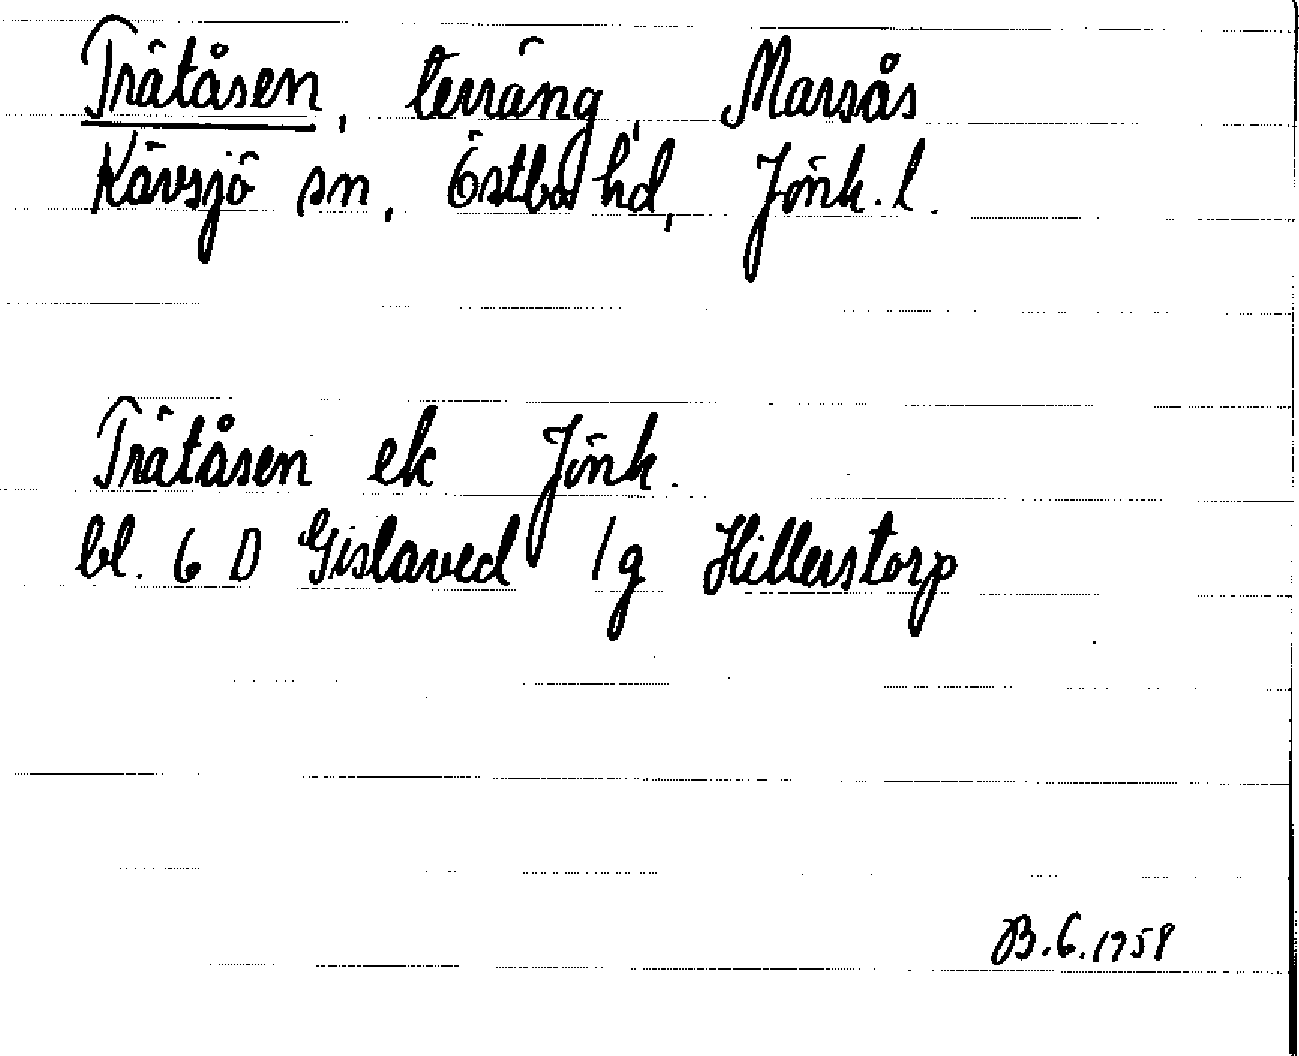 Trätåsen, terräng, Marsås
Kävsjö sn, Östbo hd, Jönk. l.
Trätåsen ek Jönk.
bl. 6 D Gislaved 1g Hillerstorp
B.G. 1958